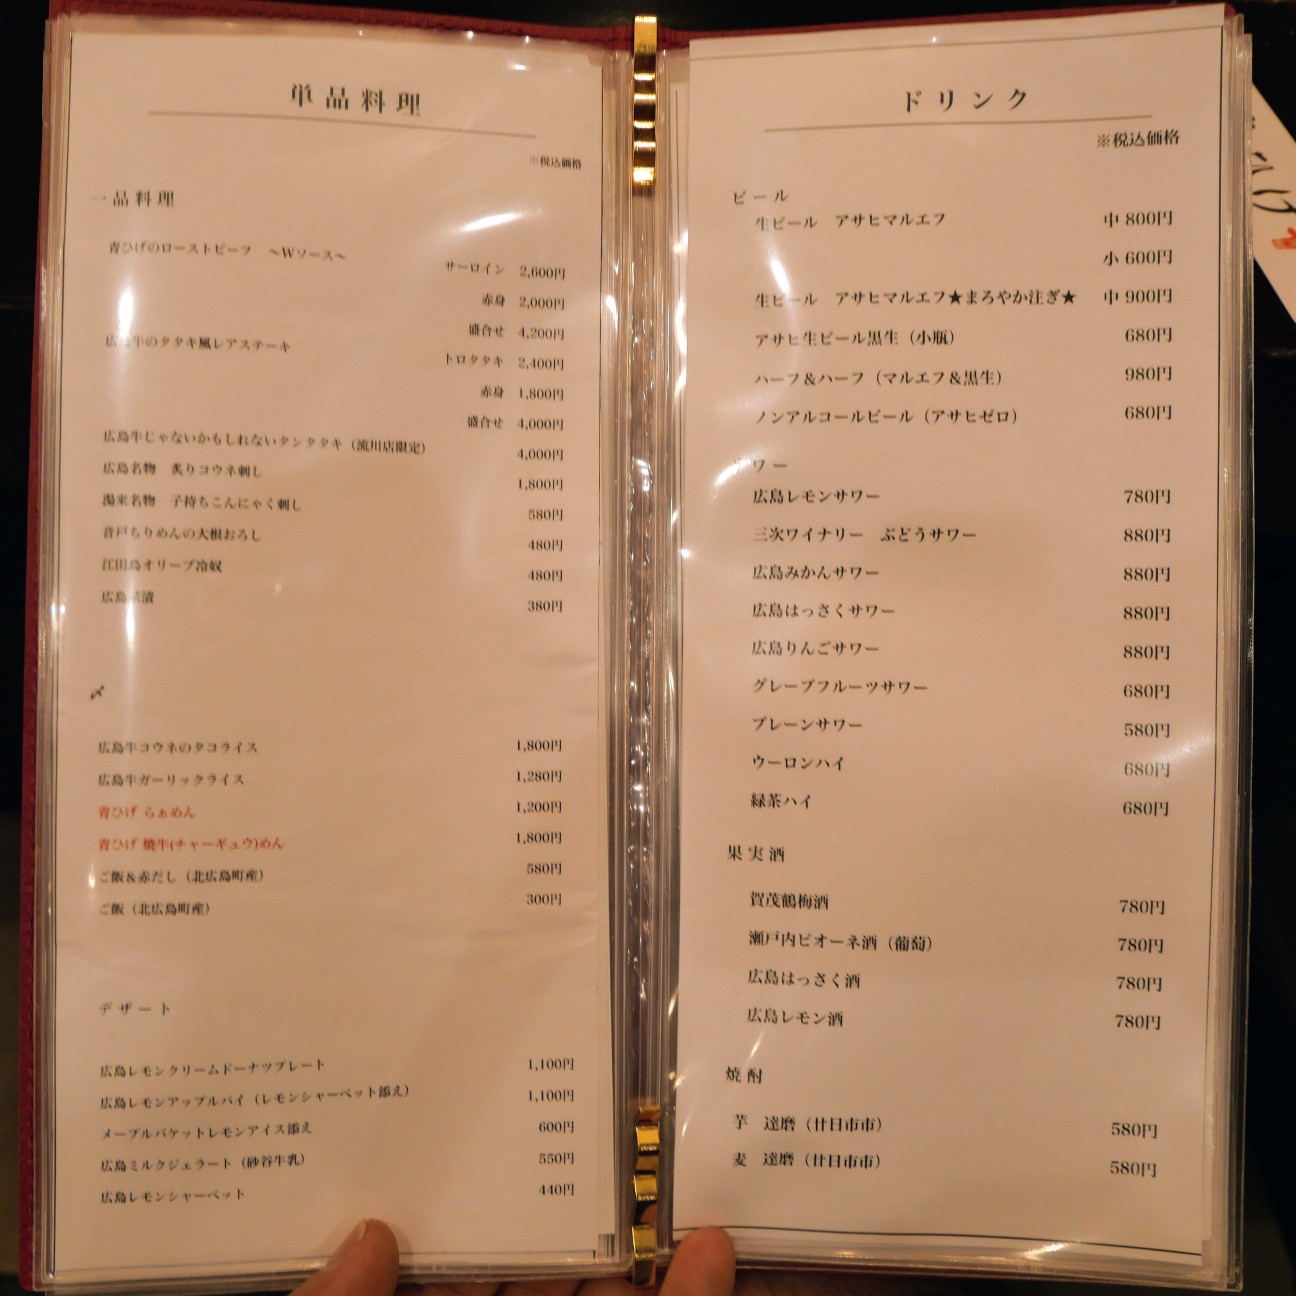 単品料理
※税込価格
一品料理
青ひげのローストビーフ ～Wソース～
サーロイン 2,600円
赤身 2,000円
盛合せ 4,200円
広島牛のタタキ風レアステーキ
トロタタキ 2,400円
赤身 1,800円
盛合せ 4,000円
広島牛じゃないかもしれないタンタタキ（流川店限定） 4,000円
広島名物 炙りコウネ刺し 1,800円
湯来名物 子持ちこんにゃく刺し 580円
音戸ちりめんの大根おろし 480円
江田島オリーブ冷奴 480円
広島菜漬 380円
〆
広島牛コウネのタコライス 1,800円
広島牛ガーリックライス 1,280円
青ひげ らぁめん 1,200円
青ひげ 焼牛(チャーギュウ)めん 1,800円
ご飯＆赤だし（北広島町産） 580円
ご飯（北広島町産） 300円
デザート
広島レモンクリームドーナツプレート 1,100円
広島レモンアップルパイ（レモンシャーベット添え） 1,100円
メープルバケットレモンアイス添え 600円
広島ミルクジェラート（砂谷牛乳） 550円
広島レモンシャーベット 440円
ドリンク
※税込価格
ビール
生ビール アサヒマルエフ 中 800円
小 600円
生ビール アサヒマルエフ★まろやか注ぎ★ 中 900円
アサヒ生ビール黒生（小瓶） 680円
ハーフ＆ハーフ（マルエフ＆黒生） 980円
ノンアルコールビール（アサヒゼロ） 680円
サワー
広島レモンサワー 780円
三次ワイナリー ぶどうサワー 880円
広島みかんサワー 880円
広島はっさくサワー 880円
広島りんごサワー 880円
グレープフルーツサワー 680円
プレーンサワー 580円
ウーロンハイ 680円
緑茶ハイ 680円
果実酒
賀茂鶴梅酒 780円
瀬戸内ピオーネ酒（葡萄） 780円
広島はっさく酒 780円
広島レモン酒 780円
焼酎
芋 達磨（廿日市市） 580円
麦 達磨（廿日市市） 580円